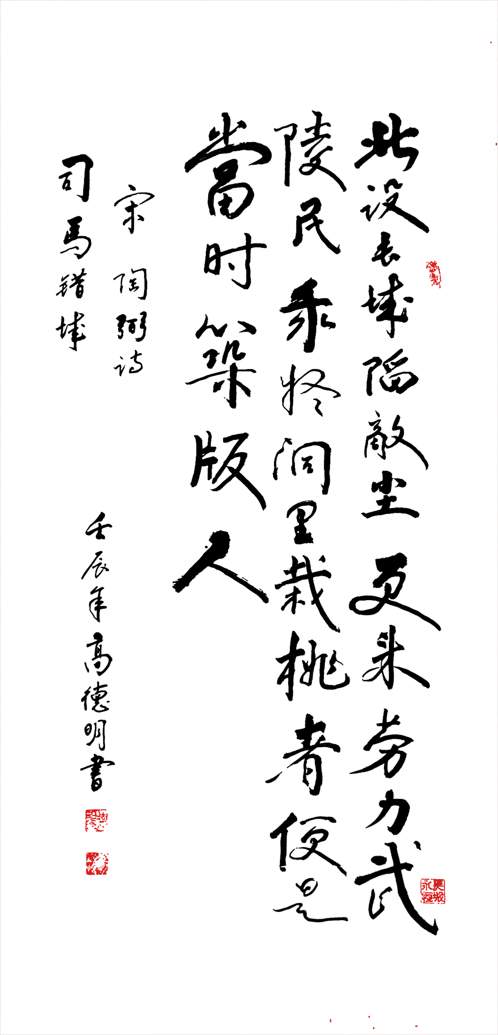 北设长城陷敵尘更来劳力武
陵民洞里栽桃者便是
當时築版人
宋陶弼诗
司馬錯城
壬辰年高德明書